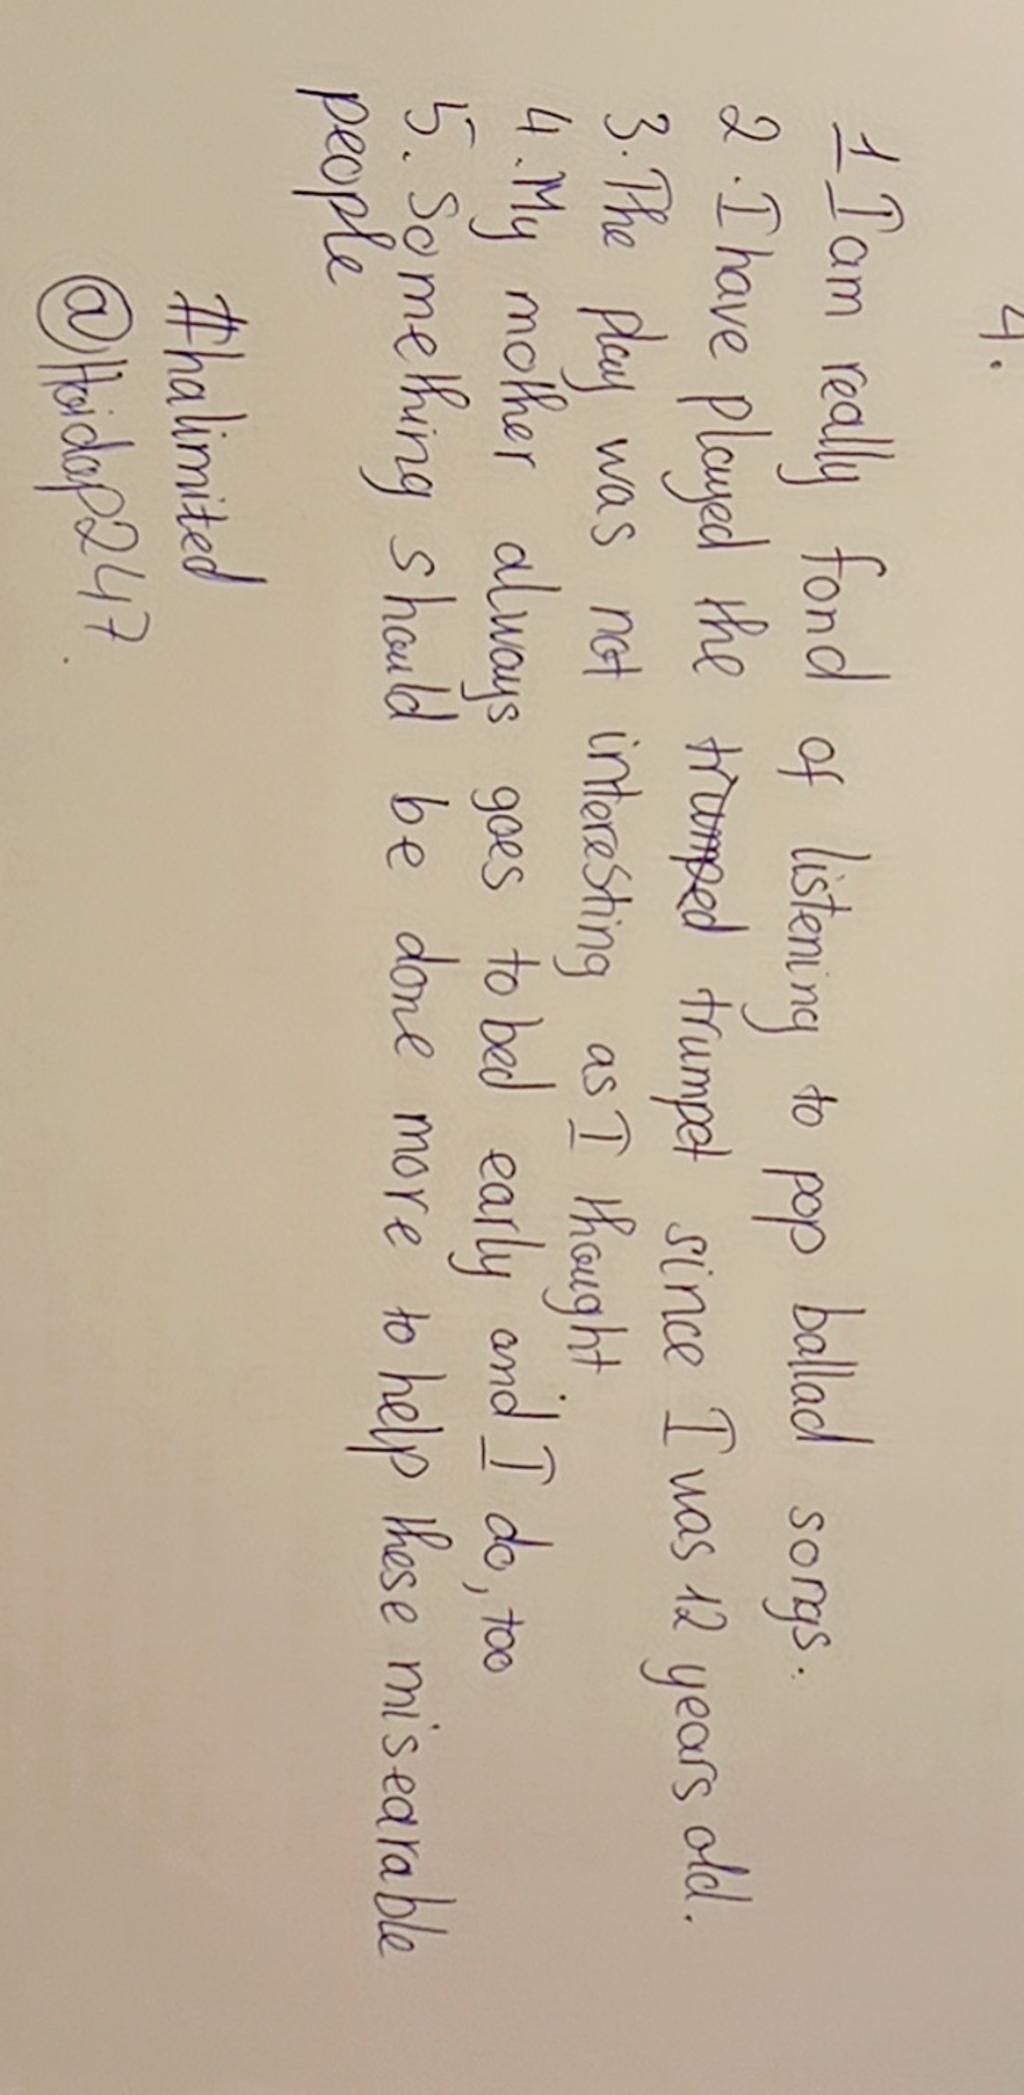 4.
1 I am really fond of listening to pop ballad songs.
2. I have played the trumped trumpet since I was 12 years old.
3. The play was not interesting as I thought.
4. My mother always goes to bed early and I do, too
5. Something should be done more to help these misearable
people
#halimited
@Hoidap247.